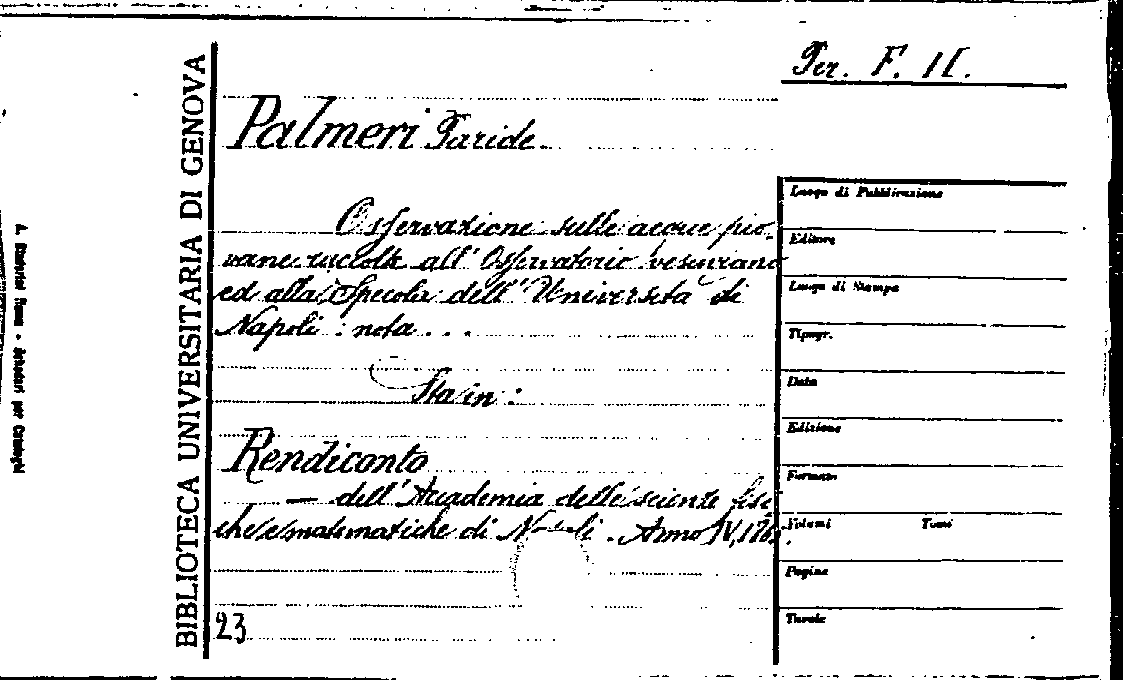 Per. F. 11.
BIBLIOTECA UNIVERSITARIA DI GENOVA
Palmeri Paride
Osservazione sulle acque pio-
vane raccolte all' Osservatorio vesuviano
ed alla Specola dell' Università di
Napoli : nota . . .
Sta in :
Rendiconto
— dell' Accademia delle scienze fisi
che e matematiche di Napoli . Anno IV,
23
Luogo di Pubblicazione
Editore
Luogo di Stampa
Tipogr.
Data
Edizione
Formato
Volumi Tomi
Pagine
Tavole
Roma - Schedari per Cataloghi